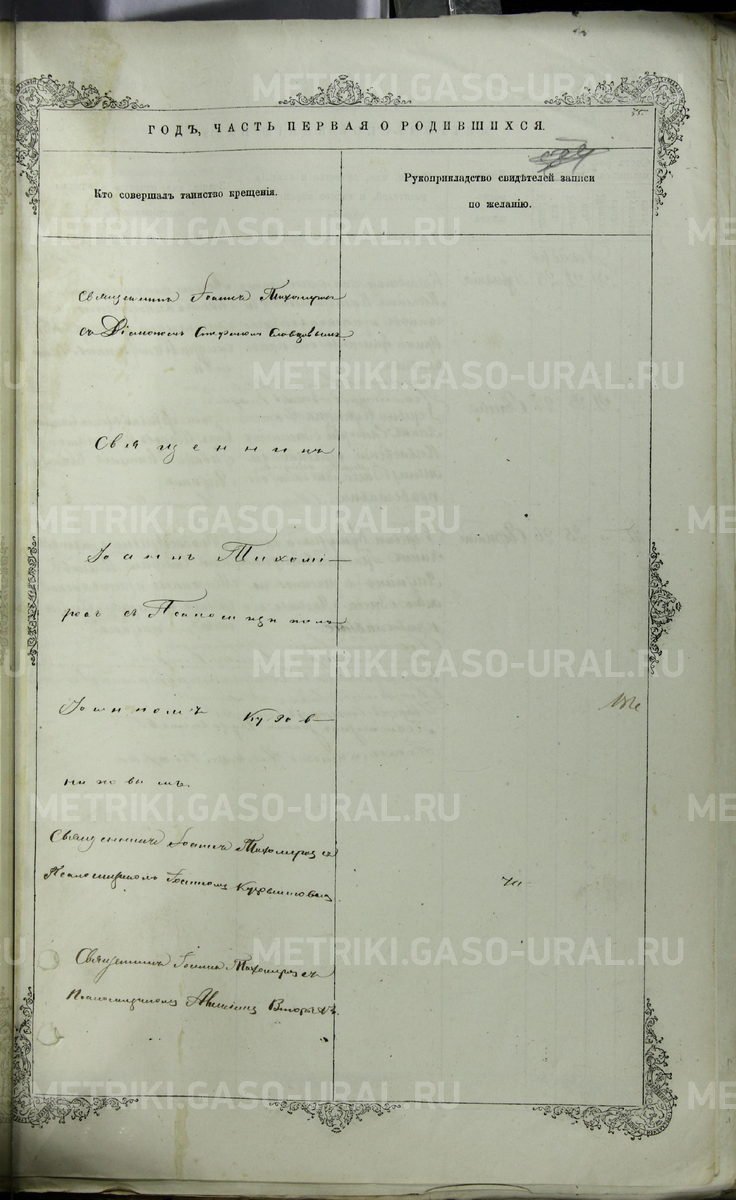 METRIKI.GASO-URAL.RU
ГОДЪ, ЧАСТЬ ПЕРВАЯ О РОДИВШИХСЯ.
Кто совершалъ таинство крещенія.
Рукоприкладство свидѣтелей записи
по желанію.
Священникъ Іоаннъ Тихомировъ
съ Діакономъ Стефаномъ Словцовымъ.
Священникъ
Іоаннъ Тихомі-
ровъ съ Псаломщикомъ
Іоанномъ
Священникъ Іоаннъ Тихомировъ съ
Псаломщикомъ Іоанномъ
Священникъ Іоаннъ Тихомировъ съ
Псаломщикомъ